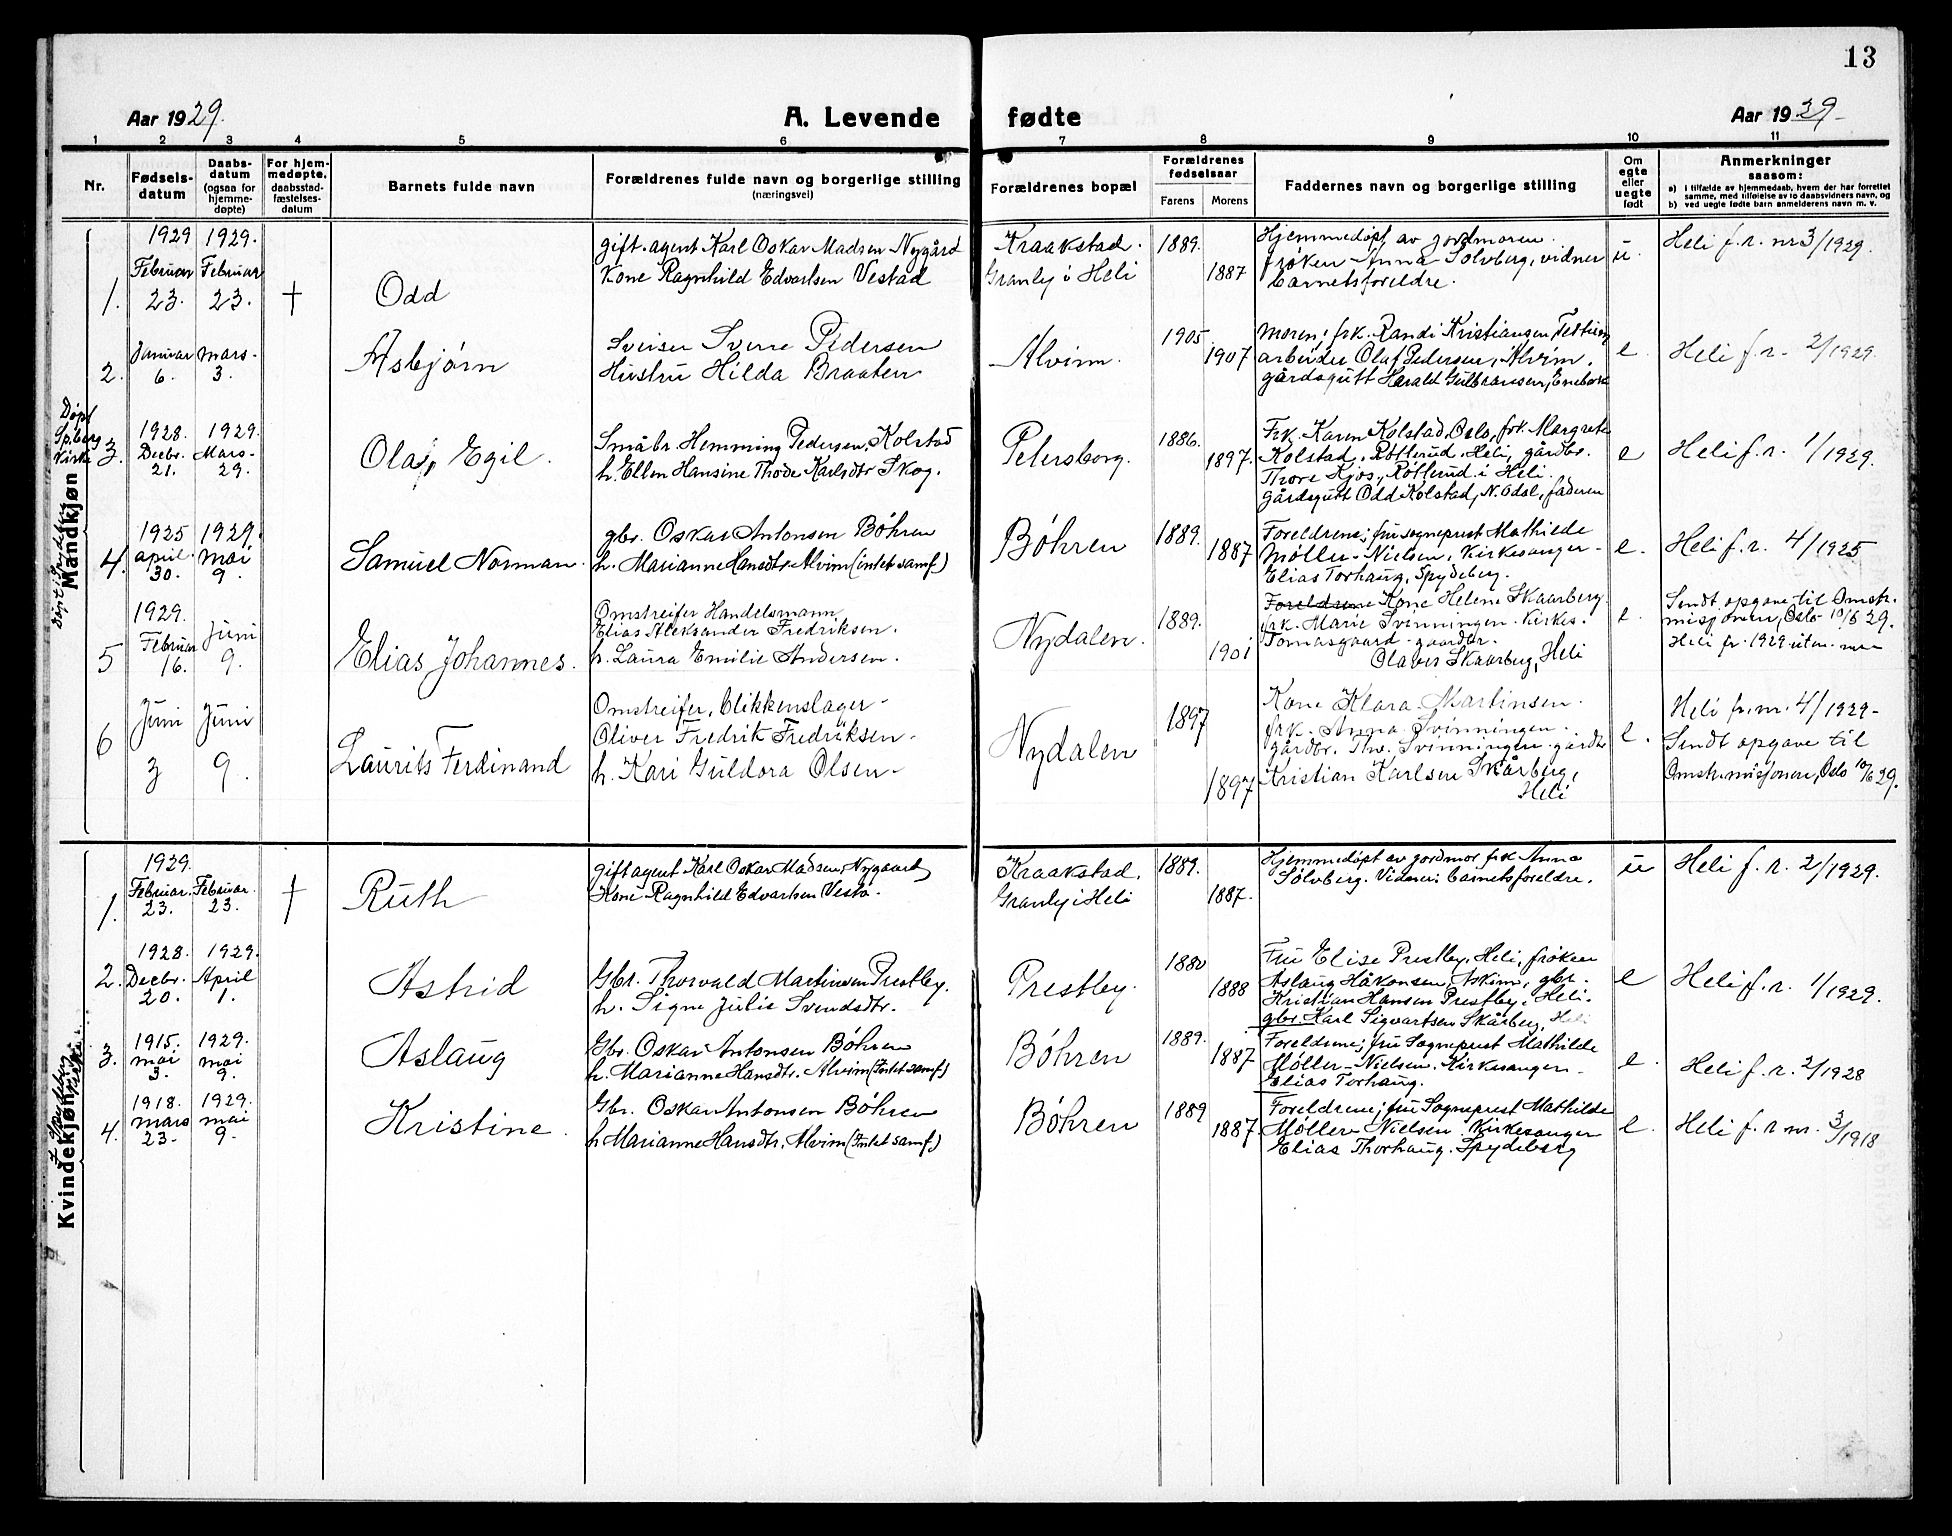 13
Aar 1929.
A. Levende fødte
Aar 1929
1 2 3 4 5 6 7 8 9 10 11
Nr.
Fødsels-
datum
Daabs-
datum
(ogsaa for
hjemme-
døpte)
For hjem-
medøpte,
daabsstad-
fæstelses-
datum
Barnets fulde navn
Forældrenes fulde navn og borgerlige stilling
(næringsvei)
Forældrenes bopæl
Forældrenes
fødselsaar
Farens Morens
Faddernes navn og borgerlige stilling
Om
egte
eller
uegte
født
Anmerkninger
saasom:
a) i tilfælde av hjemmedaab, hvem der har forrettet
samme, med tilføielse av to daabsvidners navn, og
b) ved uegte fødte barn anmelderens navn m. v.
Mandkjøn
1.
1929
Februar
23.
1929.
Februar
23.
†
Odd
gift. agent Karl Oskar Madsen Nygård
Kone Ragnhild Edvartsen Vestad
Kraakstad.
Granly i Heli
1889.
1887
Hjemmedøpt av jordmoren
frøken Anna Sølvberg, vidner
barnetsforeldre.
u.
Heli f. r. nr 3/1929.
2.
Januar
6.
Mars-
3.
Asbjørn
Sveiser Sverre Pedersen
Hustru Hilda Braaten
Alvim.
1905
1907
Moren, frk. Randi Kristiansen,
arbeider Olaf Pedersen, Alvim.
gårdsgutt Harald Gulbransen,
e.
Heli f. r. 2/1929.
Døpt
Sp.berg
Kirke
3.
1928.
Decbr.
21.
1929.
Mars-
29.
Olaf Egil.
Småbr. Hemming Pedersen, Kolstad
h. Ellen Hansine Thode Karlsdtr Skog.
Petersborg.
1886.
1897.
Frk. Karen Kolstad, Oslo, frk. Margrete
Kolstad, Røtterud, Heli, gårdbr.
Thore Kjos, Røtterud i Heli.
Gårdsgutt Odd Kolstad, N. Odal, faderen
e
Heli f. r. 1/1929.
4.
1925
april
30.
1929.
mai
9.
Samuel Norman.
gbr. Oskar Antonsen Bøhren
h. Marianne Hansdtr. Alvim (intet samf.)
Bøhren
1889.
1887
Foreldrene; fru sogneprest Mathilde
Møller-Nielsen, Kirkesanger-
Elias Torhaug, Spydeberg.
e.
Heli f. r. 4/1925
5
1929.
Februar
16.
Juni
9.
Elias Johannes.
Omstreifer Handelsmann
Elias Aleksander Fredriksen.
h. Laura Emilie Andersen.
Nydalen.
1889.
1901
Foreldrene Kone Helene Skaarberg.
frk. Marie Svenningen. Kirkes.
Tomasgaard - gaardbr.
Olaves Skaarberg, Heli
e.
Sendt opgave til Omstr.
misjonen, Oslo 10/6 29.
Heli fr. 1929 uten
6
Juni
3
Juni
9.
Laurits Ferdinand
Omstreifer, blikkenslager-
Oliver Fredrik Fredriksen-
h. Kari Guldora Olsen-
Nydalen
1897
1897
Kone Klara Martinsen.
frk. Anna Svinningen-
gårdbr. Thv. Svinningen. gårdbr
Kristian Karlsen Skårberg,
Heli
e.
Heli fr. nr. 4/1929-
Sendt opgave til
Omstr. misjonen, Oslo 10/6 29.
Kvindekjøn
1.
1929.
Februar.
23.
Februar.
23.
†
Ruth
gift agent Karl Oskar Madsen, Nygaard
Kone Ragnhild Edvartsen Vestad.
Kraakstad.
Granly i Heli
1889.
1887.
Hjemmedøpt av jordmor frk Anna
Sølvberg. Vidner: barnetsforeldre.
u
Heli f. r. 2/1929.
2.
1928.
Decbr.
20.
1929.
April
1.
Astrid
Gbr. Thorvald Martinsen Prestby.
h. Signe Julie Svendsdtr.
Prestby.
1880
1888
Fru Elise Prestby, Heli, frøken
Aslaug Håkonsen, Askim, gbr.
Kristian Hansen Prestby i Heli.
gbr. Karl Sigvartsen Skårberg, Heli
e
Heli f. r. 1/1929.
3.
1915.
mai
3.
1929.
mai
9.
Aslaug
Gbr. Oskar Antonsen Bøhren
h. Marianne Hansdtr. Alvim (Intet samf.)
Bøhren
1889.
1887
Foreldrene; fru Sogneprest Mathilde
Møller-Nielsen. Kirkesanger-
Elias Torhaug.
e.
Heli f. r. 2/1928
4.
1918.
mars
23.
1929.
mai
9.
Kristine.
Gbr. Oskar Antonsen Bøhren
h Marianne Hansdtr. Alvim (Intet samf.)
Bøhren
1889
1887
Foreldrene; fru Sogneprest Mathilde
Møller Nielsen. Kirkesanger
Elias Thorhaug. Spydeberg
e.
Heli f. r nr. 3/1918